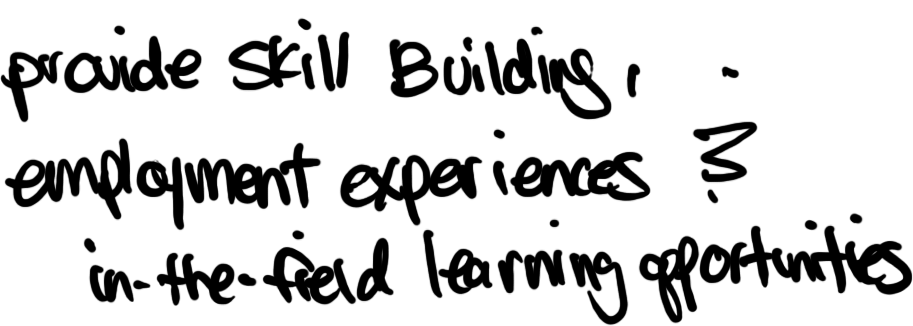 provide Skill Building,
employment experiences &
in-the-field learning opportunities